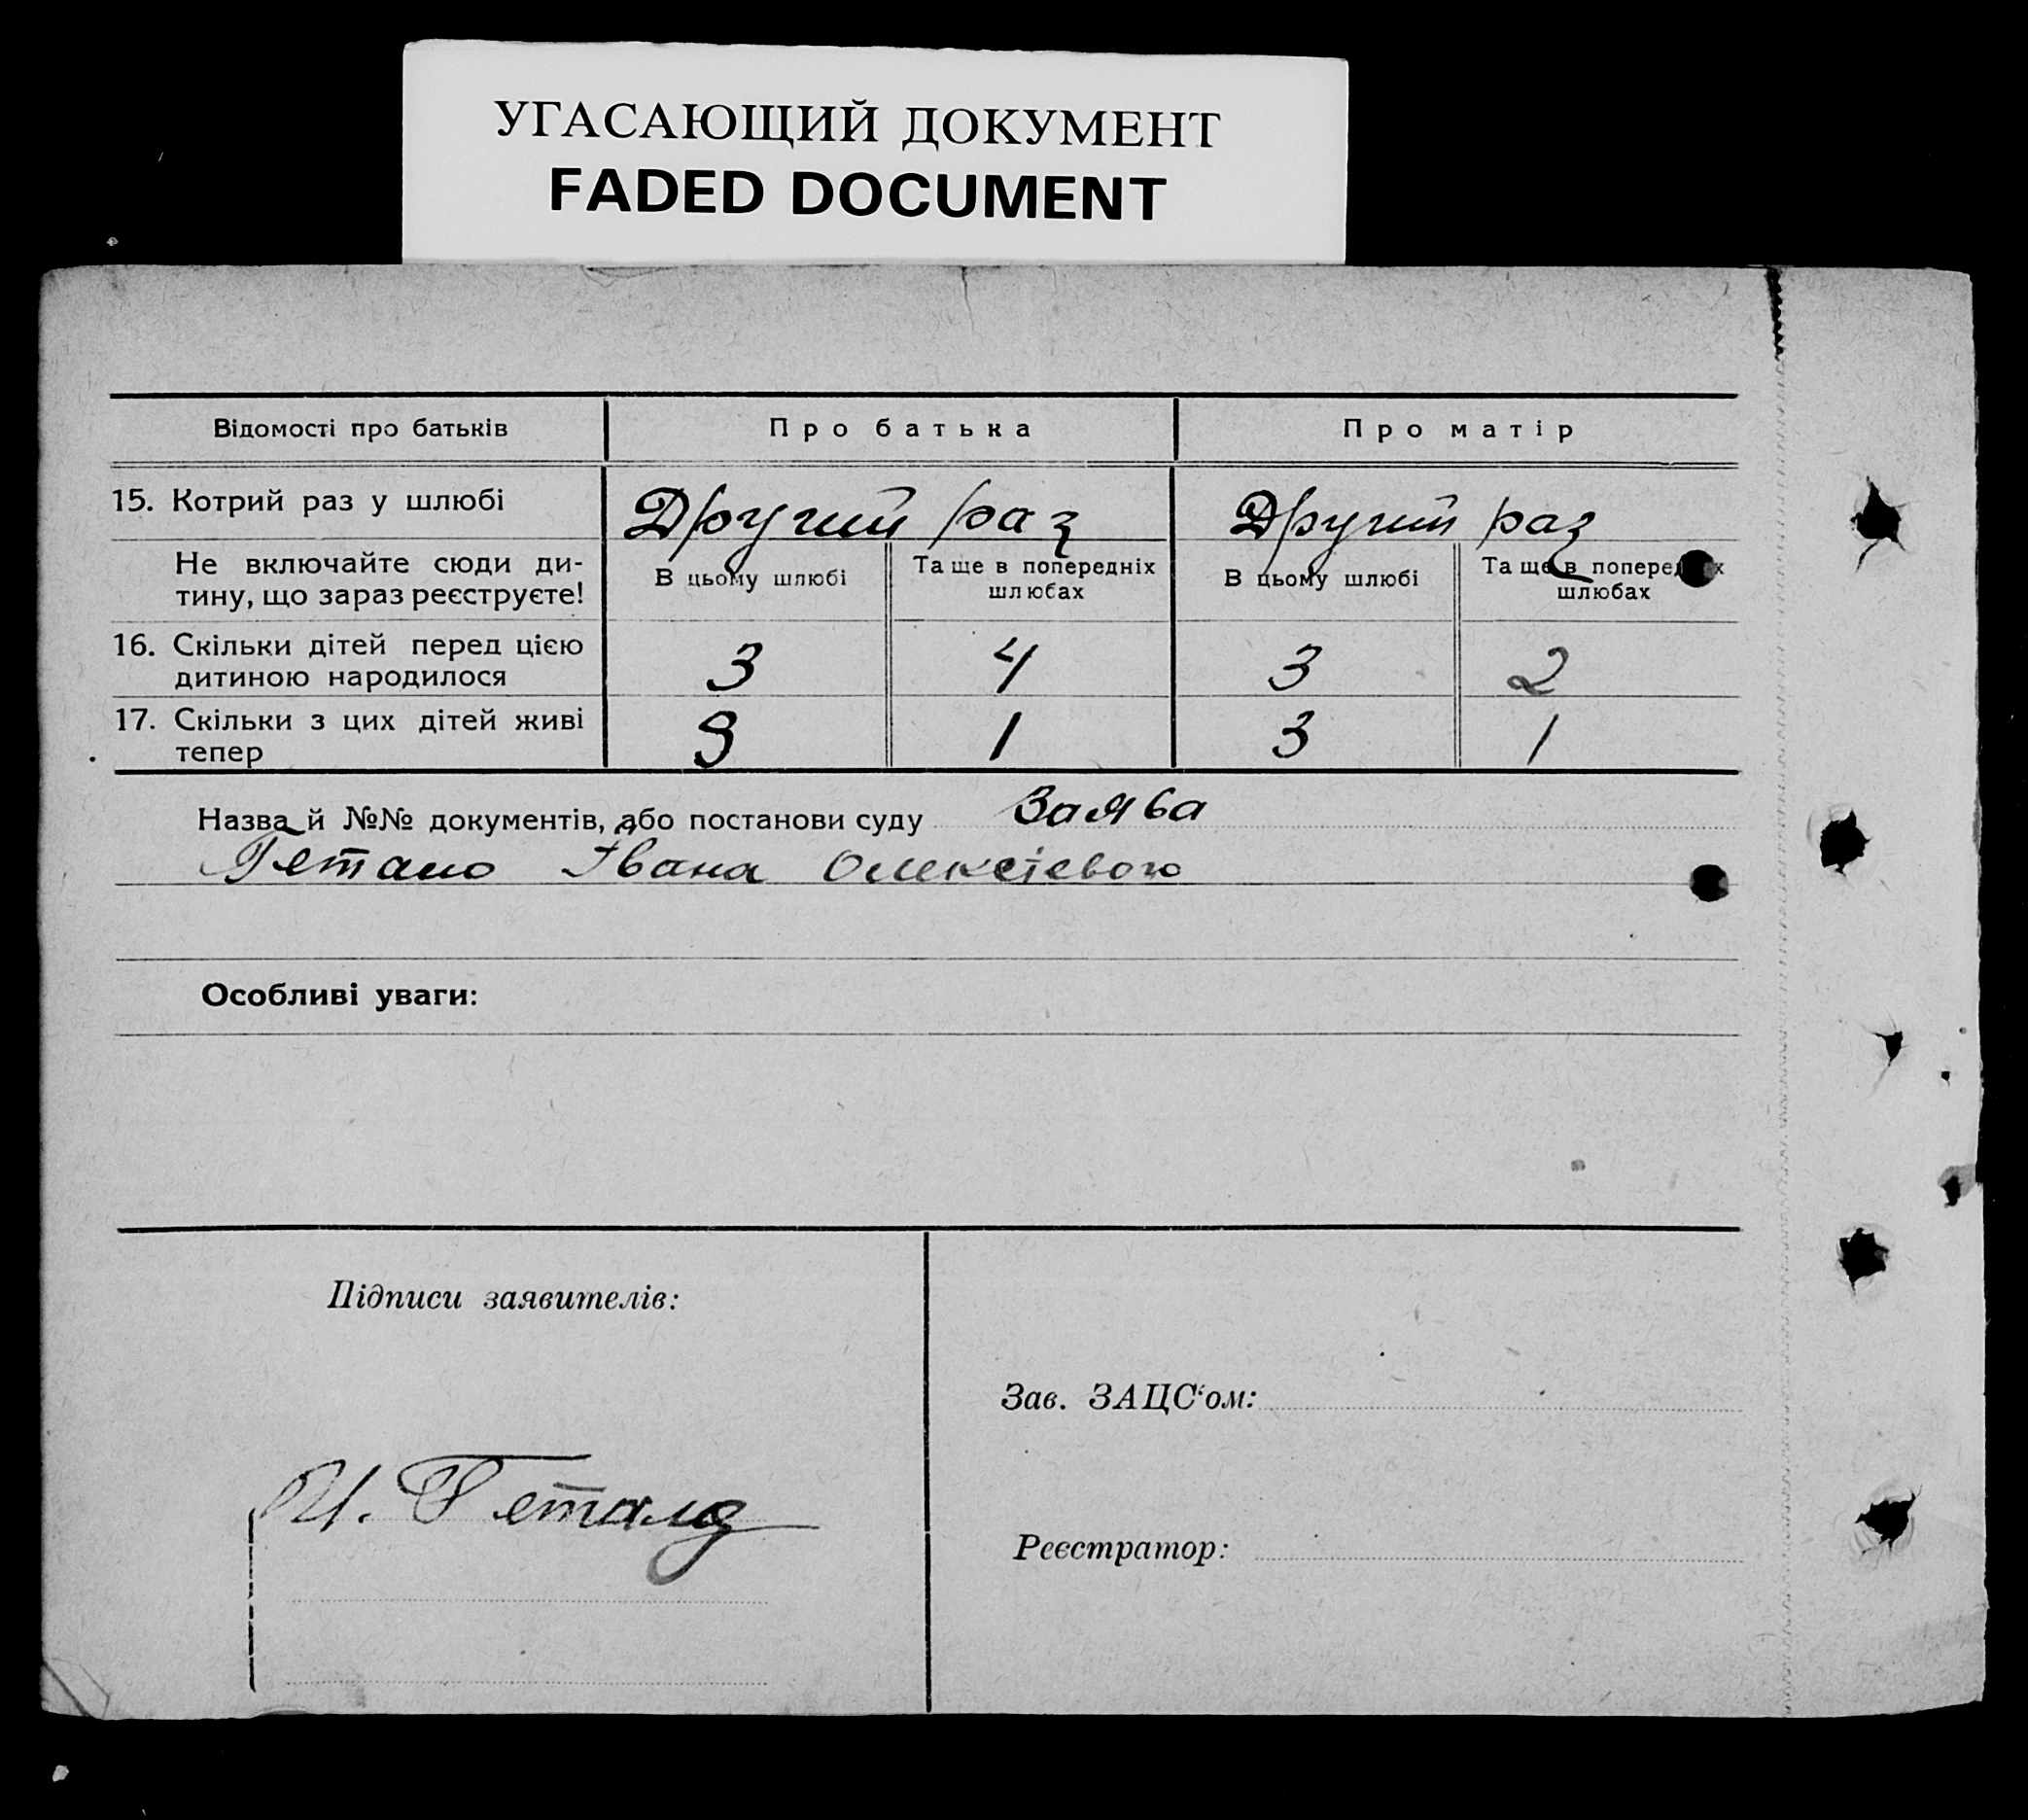 УГАСАЮЩИЙ ДОКУМЕНТ
FADED DOCUMENT
Відомості про батьків Про батька Про матір
15. Котрий раз у шлюбі Другий раз Другий раз
Не включайте сюди ди-
тину, що зараз реєструєте!
В цьому шлюбі
Та ще в попередніх
шлюбах
В цьому шлюбі
Та ще в
шлюбах
16. Скільки дітей перед цією
дитиною народилося 3 4 3 2
17. Скільки з цих дітей живі
тепер 3 1 3 1
Назва й №№ документів, або постанови суду Заява
Івана
Особливі уваги:
Підписи заявителів:
Зав. ЗАЦС‘ом:
И.
Реєстратор: